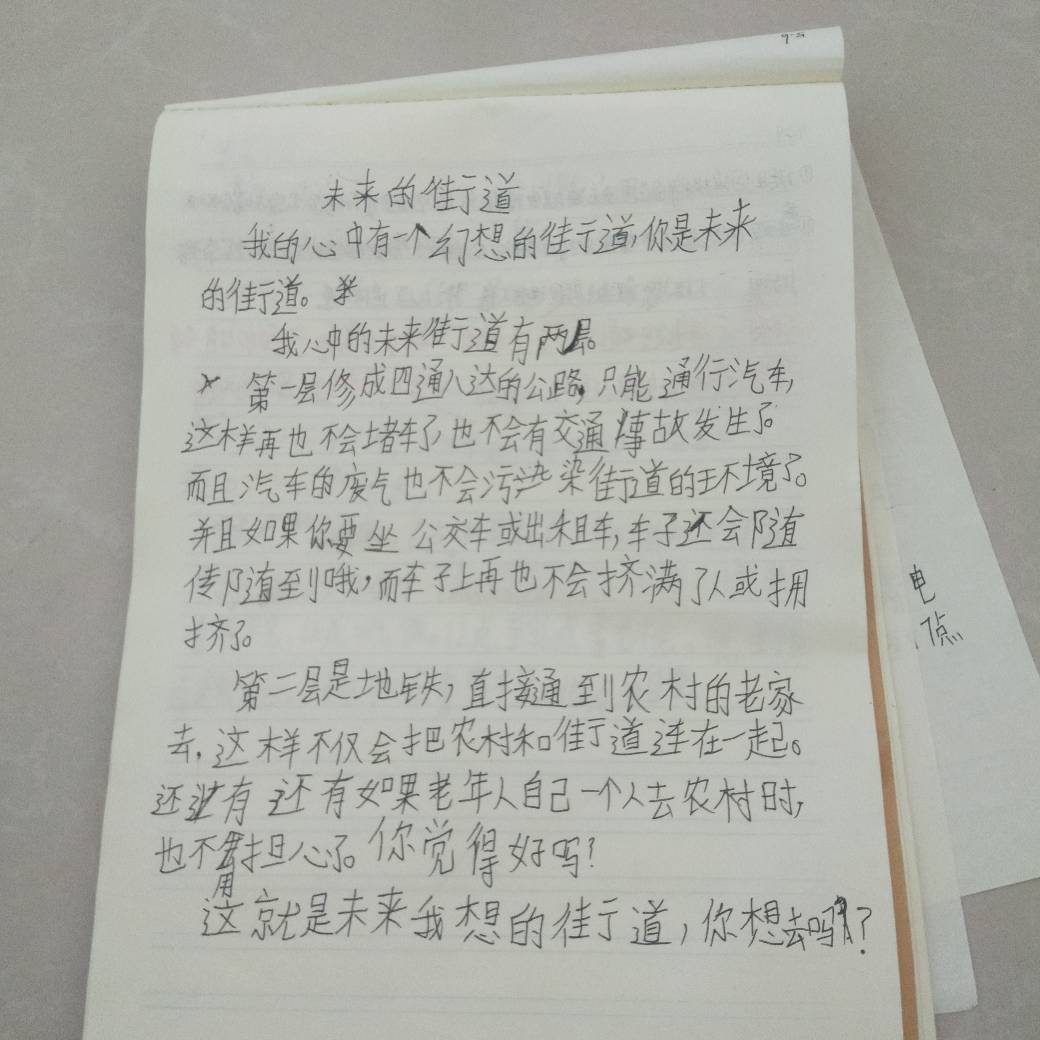 未来的街道
我的心中有一个幻想的街道,你是未来
的街道。
我心中的未来街道有两层。
第一层修成四通八达的公路,只能通行汽车,
这样再也不会堵车了,也不会有交通事故发生了。
而且汽车的废气也不会污染街道的环境了。
并且如果你要坐公交车或出租车,车子还会随
传随到哦,而车子上再也不会挤满了人或拥
挤了。
第二层是地铁,直接通到农村的老家
去,这样不仅会把农村和街道连在一起。
还有还有如果老年人自己一个人去农村时,
也不用担心了。你觉得好吗?
这就是未来我想的街道,你想去吗?
电
点